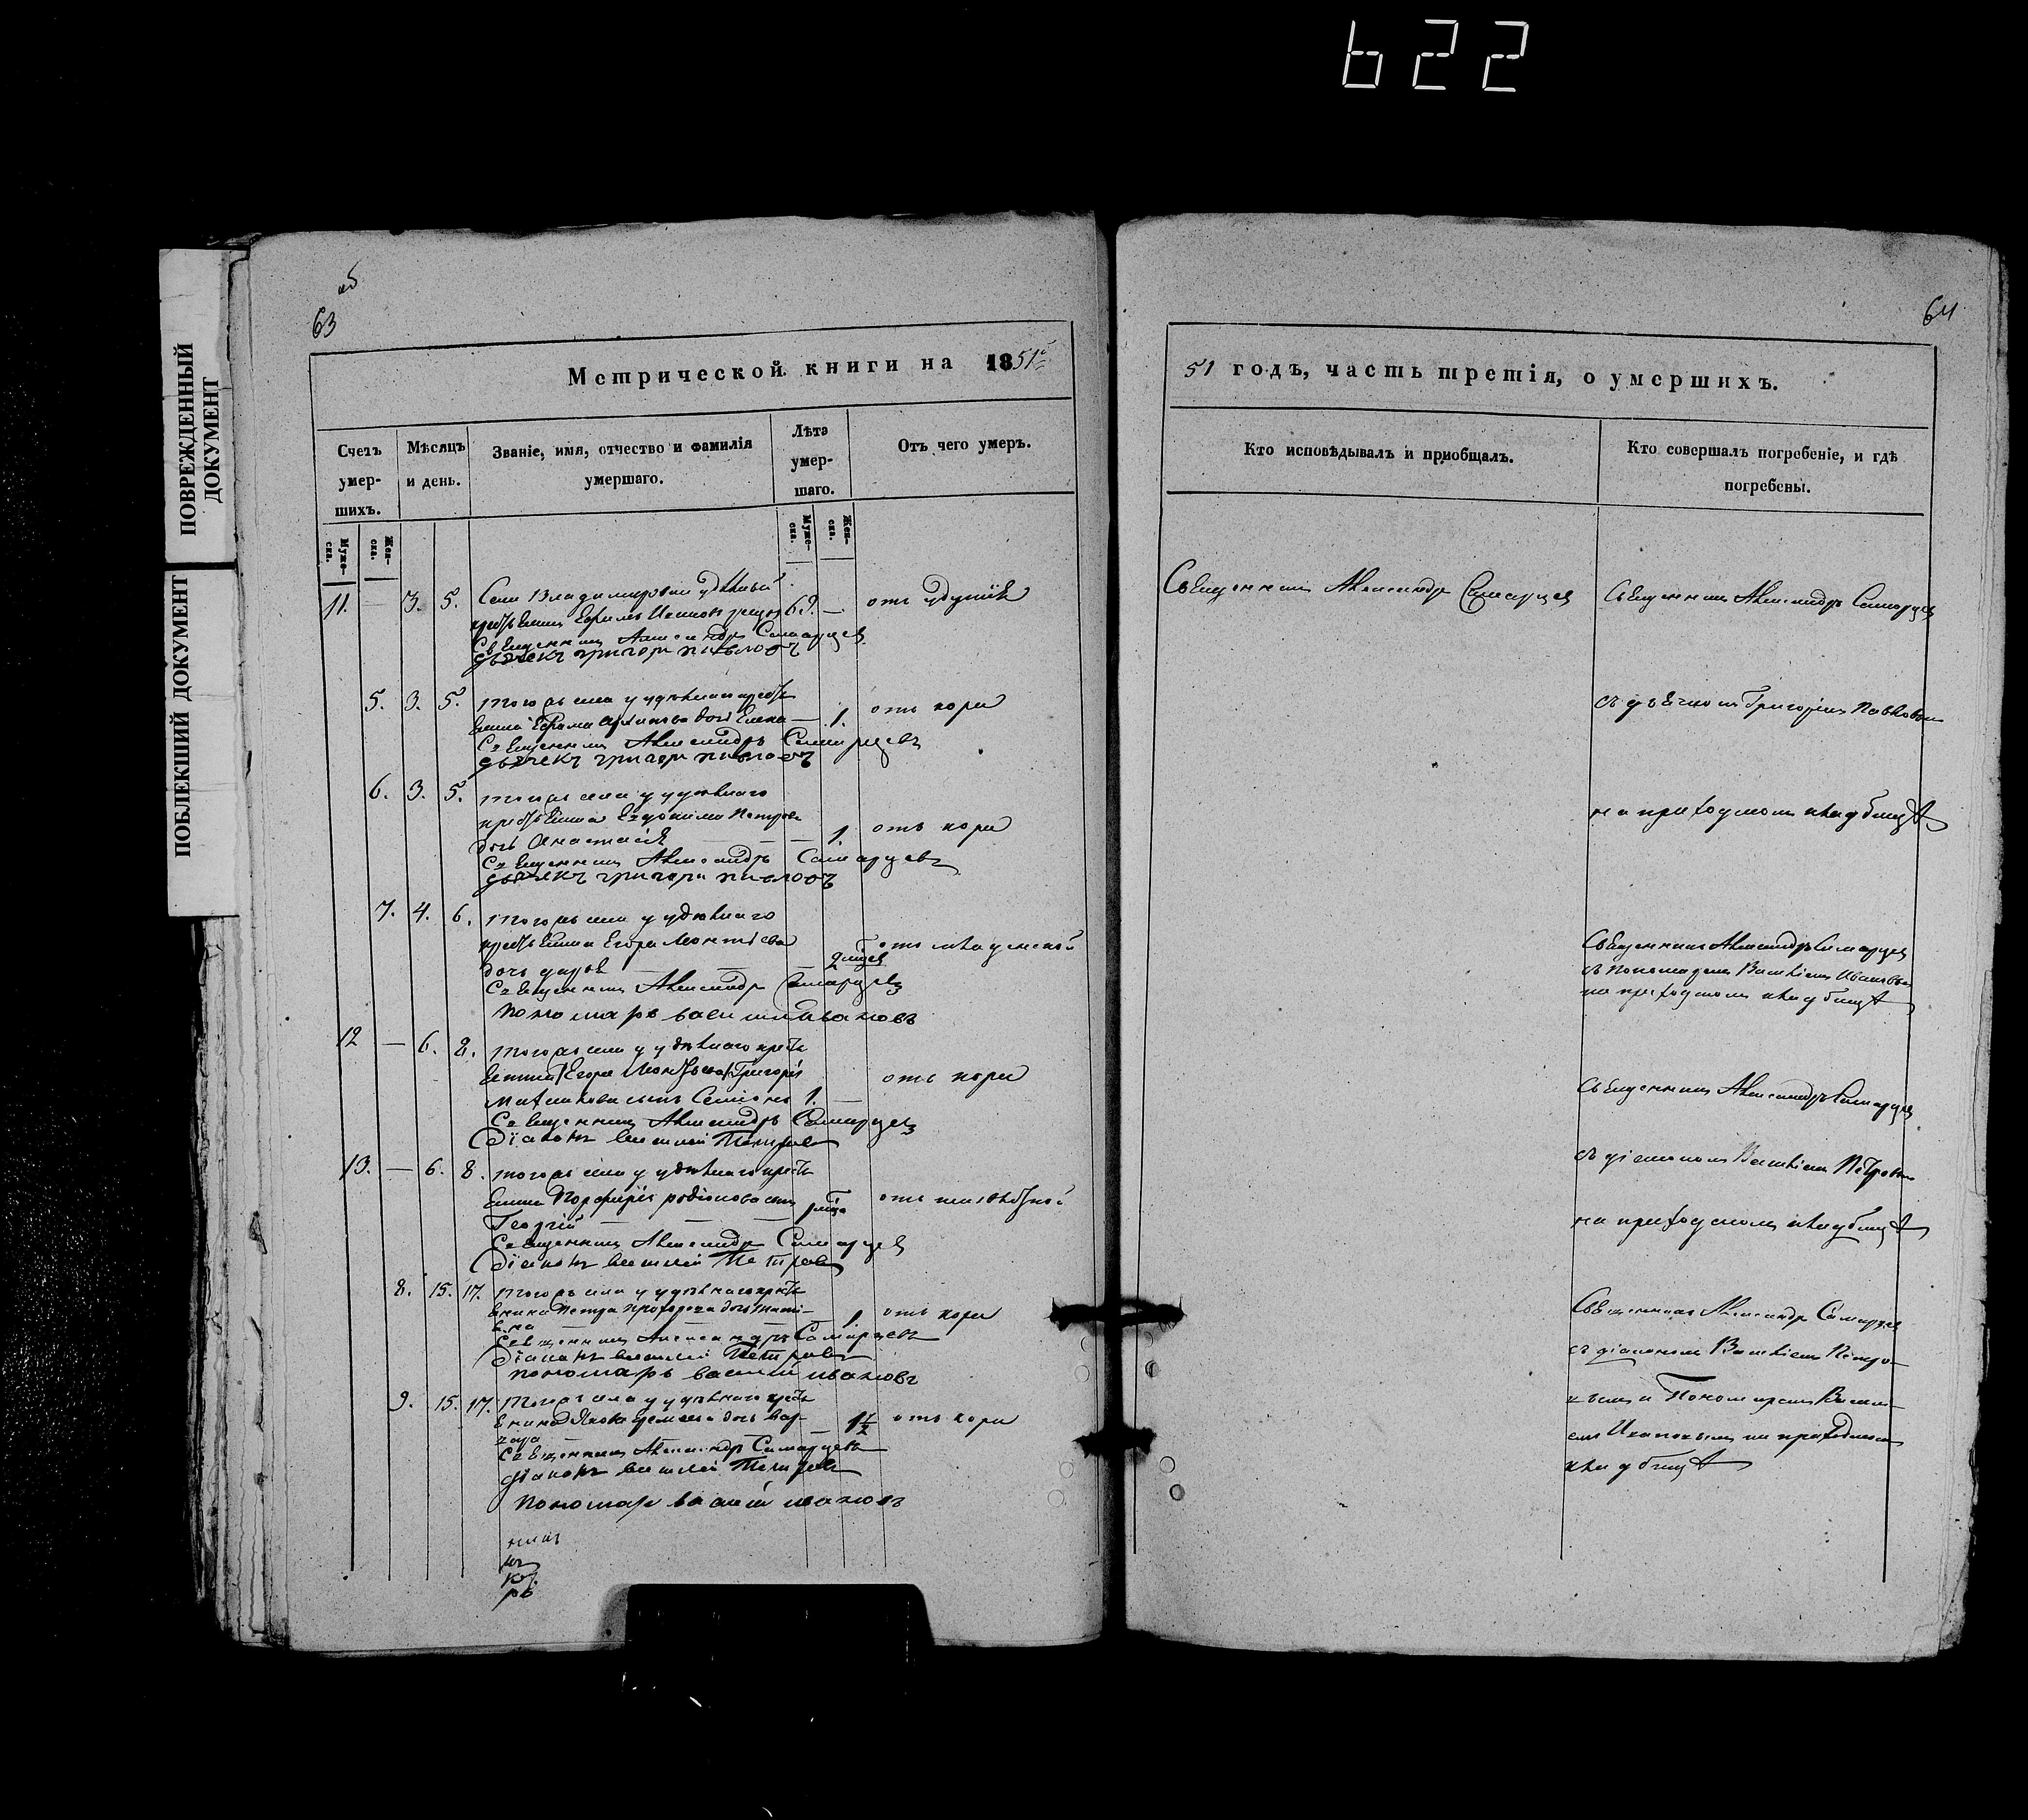 622
ПОВРЕЖДЕННЫЙ
ДОКУМЕНТ
ПОБЛЕКШИЙ ДОКУМЕНТ
63
Метрической книги на 1851й
Счетъ умер-шихъ.
Мѣсяцъ и день.
Званіе, имя, отчество и фамилія умершаго.
Лѣта умер-шаго.
Отъ чего умеръ.
Муже-ска.
Жен-ска.
Муже-ска.
Жен-ска.
11. — 3. 5. Села Владимировки удѣльный
69. — отъ удушія
Священникъ Александръ Самарцевъ
дьячекъ григори павловъ
5. 3. 5. того жъ села удѣльнаго кресть
дочь Елена — 1. отъ кори
Священникъ Александръ Самарцевъ
дьячекъ григори павловъ
6. 3. 5. того жъ села удѣльнаго
крестьянина Евдокима Петрова
дочь Анастасія — — 1. отъ кори
Священникъ Александръ Самарцевъ
дьячекъ григори павловъ
7. 4. 6. того жъ села удѣльнаго
крестьянина Егора Леонтьева
отъ младенской
дочь
Священникъ Александръ Самарцевъ
пономаръ васили ивановъ
12 — 6. 8. того жъ села удѣльнаго кресть
янина Егора Леонтьева Григорія
сынъ Семіонъ 1. — отъ кори
Священникъ Александръ Самарцевъ
Діаконъ василей Петровъ
13. — 6. 8. того жъ села удѣльнаго кресть
янина Порфирія родіонова сынъ
Георгій — — —
Священникъ Александръ Самарцевъ
Діаконъ василей Петровъ
8. 15. 17. того жъ села удѣльнаго кресть
янина Петра дочь Тати-
яна — — 1 отъ кори
Священникъ Александръ Самарцевъ
Діаконъ василей Петровъ
пономаръ василий ивановъ
9. 15. 17. того жъ села удѣльнаго кресть
янина Якова дочь Вар-
вара — 1½ отъ кори
Священникъ Александръ Самарцевъ
Діаконъ василей Петровъ
пономаръ василій ивановъ
64
51 годъ, часть третія, о умершихъ.
Кто исповѣдывалъ и пріобщалъ.
Кто совершалъ погребеніе, и гдѣ погребены.
Священникъ Александръ Самарцевъ
Священникъ Александръ Самарцевъ
съ дьячкомъ Григоріемъ Павловымъ
на приходскомъ кладбищѣ
Священникъ Александръ Самарцевъ
съ пономаремъ Василіемъ Ивановымъ
на приходскомъ кладбищѣ
Священникъ Александръ Самарцевъ
съ діакономъ Василіемъ Петровымъ
на приходскомъ кладбищѣ
Священникъ Александръ Самарцевъ
съ діакономъ Василіемъ Петро-
вымъ и Пономаремъ Васили-
емъ Ивановымъ на приходскомъ
кладбищѣ